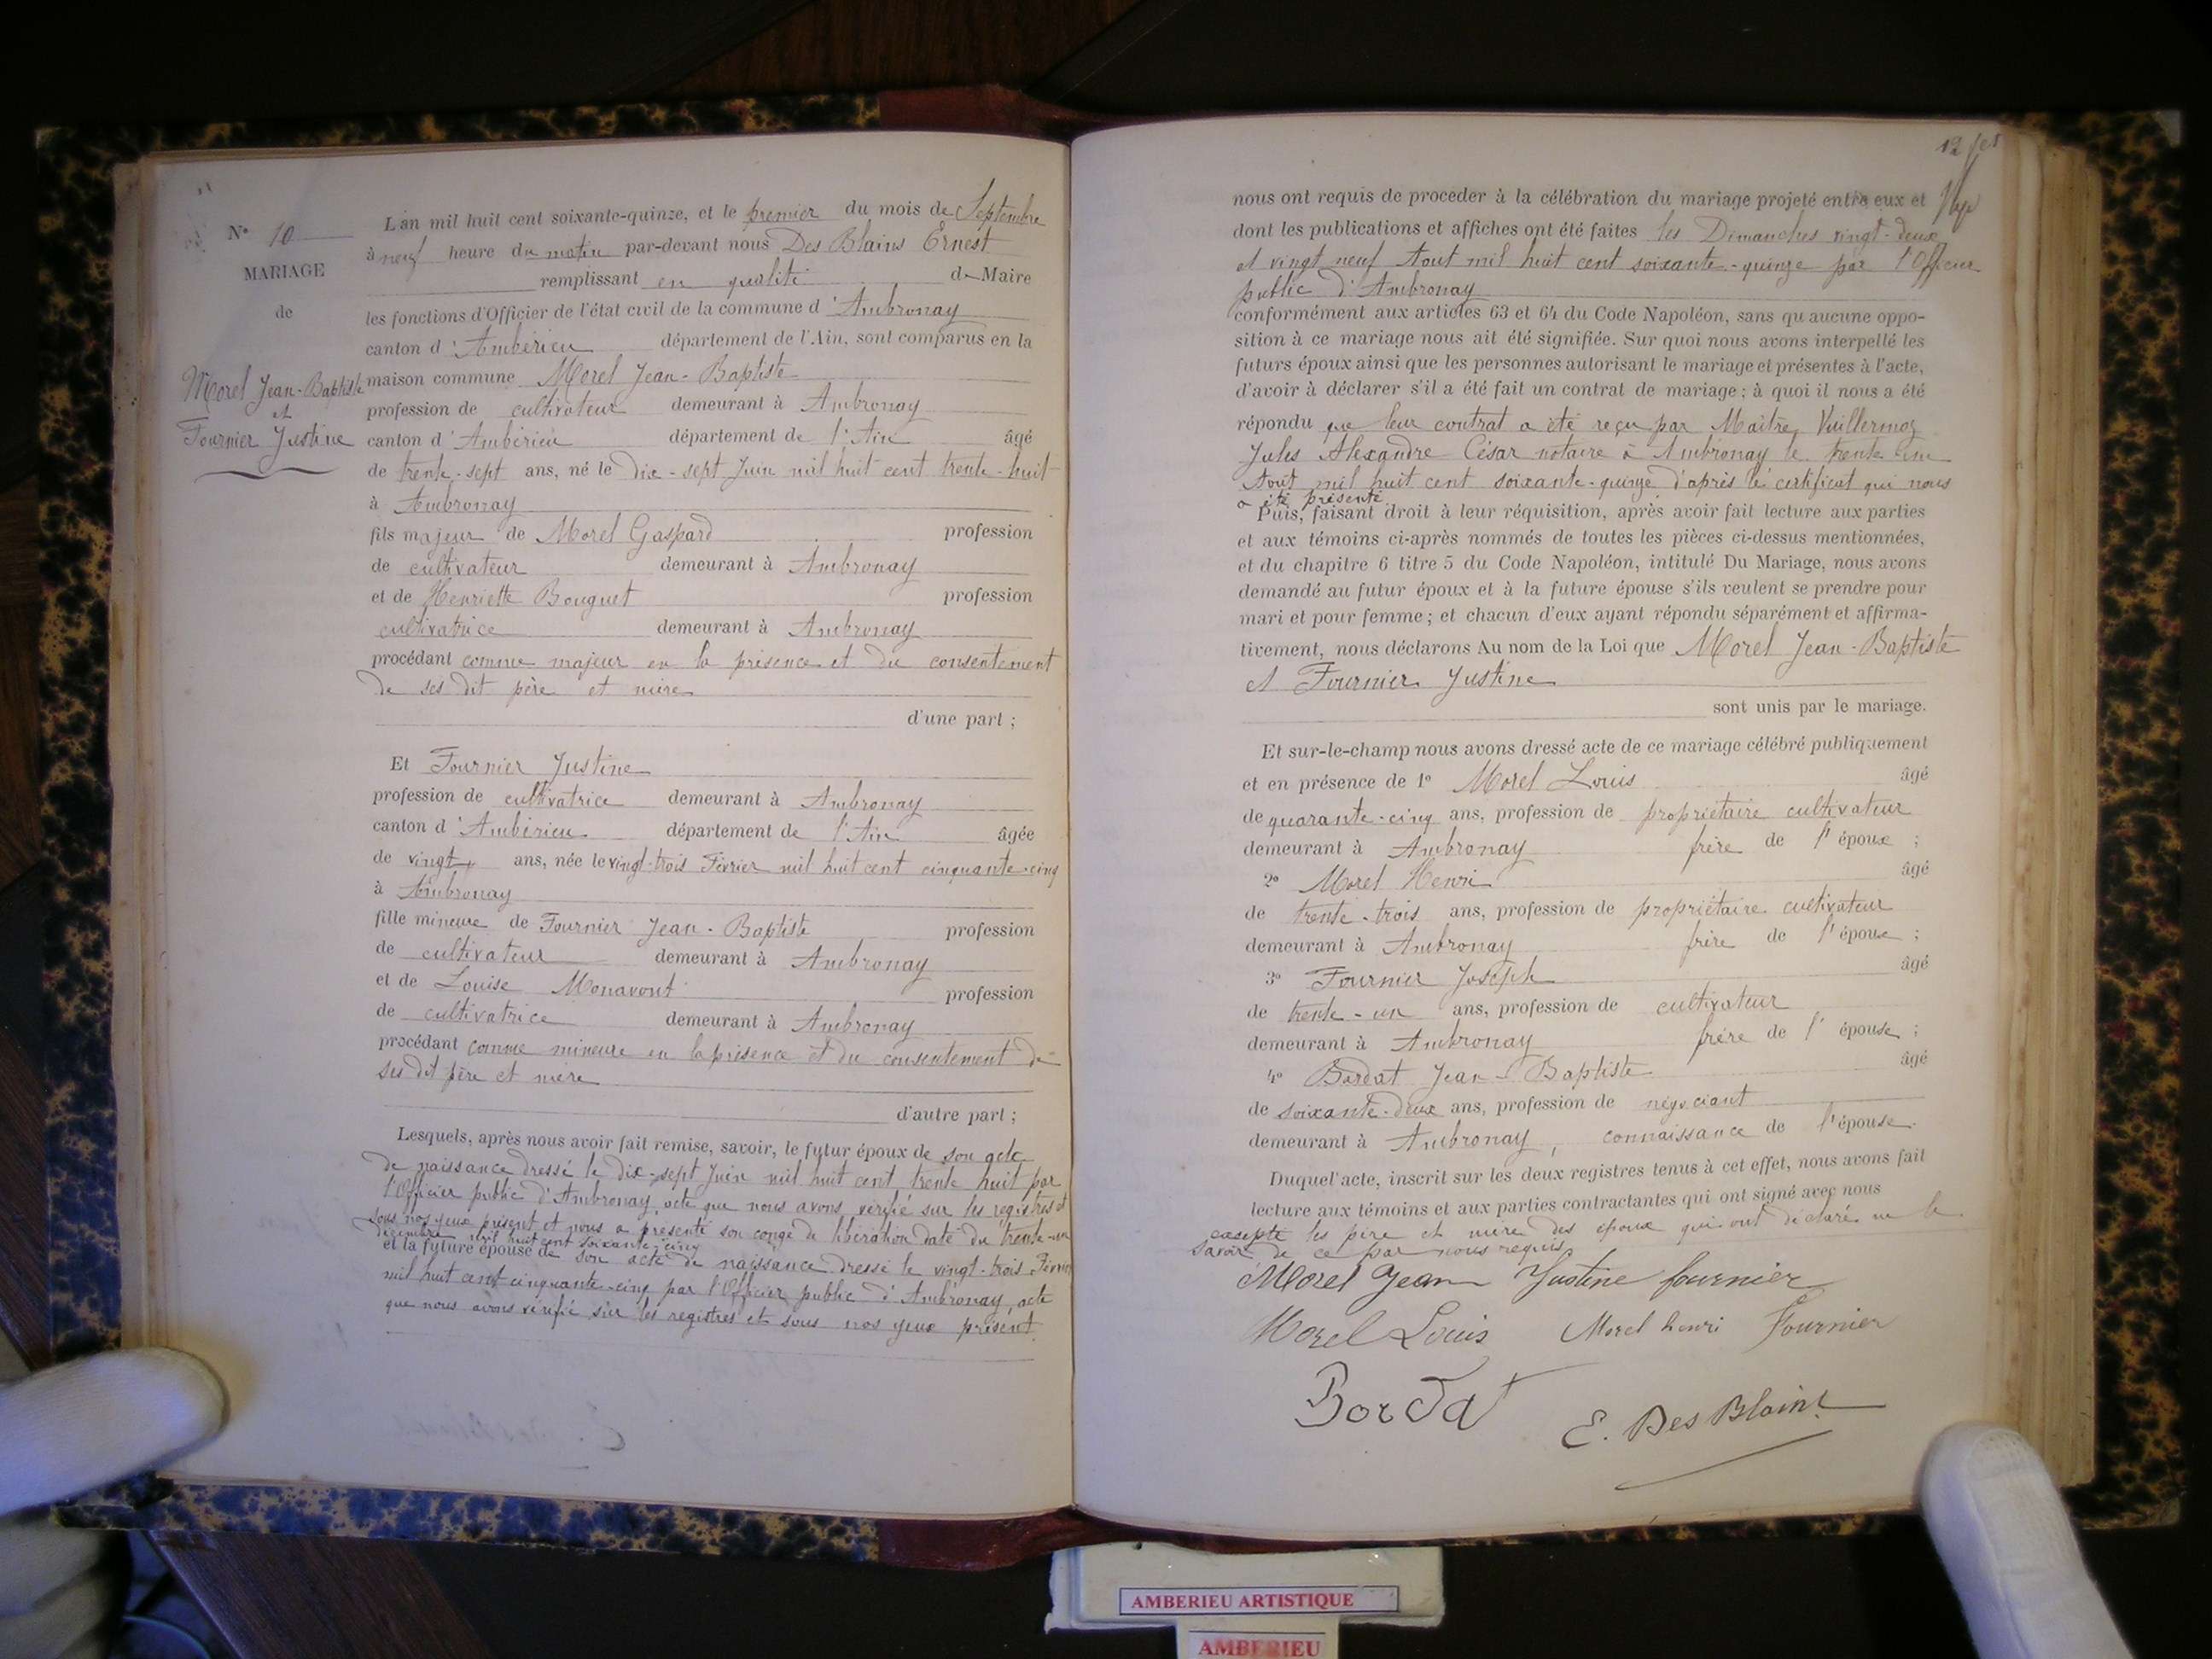 N° 10
MARIAGE
de
Morel Jean-Baptiste
et
Fournier Justine
L'an mil huit cent soixante-quinze, et le premier du mois de Septembre
à neuf heure du matin par-devant nous Des Blains Ernest
remplissant en qualité de Maire
les fonctions d'Officier de l'état civil de la commune d'Ambronay
canton d'Ambérieu département de l'Ain, sont comparus en la
maison commune Morel Jean-Baptiste
profession de cultivateur demeurant à Ambronay
canton d'Ambérieu département de l'Ain âgé
de trente-sept ans, né le dix-sept Juin mil huit cent trente-huit
à Ambronay
fils majeur de Morel Gaspard profession
de cultivateur demeurant à Ambronay
et de Henriette Bouguet profession
cultivatrice demeurant à Ambronay
procédant comme majeur en la présence et du consentement
de ses dit père et mère
d'une part ;
Et Fournier Justine
profession de cultivatrice demeurant à Ambronay
canton d'Ambérieu département de l'Ain âgée
de vingt ans, née le vingt-trois Février mil huit cent cinquante-cinq
à Ambronay
fille mineure de Fournier Jean-Baptiste profession
de cultivateur demeurant à Ambronay
et de Louise Monavont profession
de cultivatrice demeurant à Ambronay
procédant comme mineure en la présence et du consentement de
ses dit père et mère
d'autre part ;
Lesquels, après nous avoir fait remise, savoir, le futur époux de son acte
de naissance dressé le dix-sept Juin mil huit cent trente huit par
l'Officier public d'Ambronay, acte que nous avons vérifié sur les registres et
sous nos yeux présent et nous a présenté son congé de libération daté du trente-un
décembre mil huit cent soixante-cinq
et la future épouse de son acte de naissance dressé le vingt-trois Février
mil huit cent cinquante-cinq par l'Officier public d'Ambronay, acte
que nous avons vérifié sur les registres et sous nos yeux présent.
12
nous ont requis de proceder à la célébration du mariage projeté entre eux et
dont les publications et affiches ont été faites les Dimanches vingt-deux
et vingt neuf Aout mil huit cent soixante-quinze par l'Officier
public d'Ambronay
conformément aux articles 63 et 64 du Code Napoléon, sans qu'aucune oppo-
sition à ce mariage nous ait été signifiée. Sur quoi nous avons interpellé les
futurs époux ainsi que les personnes autorisant le mariage et présentes à l'acte,
d'avoir à déclarer s'il a été fait un contrat de mariage ; à quoi il nous a été
répondu que leur contrat a été reçu par Maître Vuillermoz
Jules Alexandre César notaire à Ambronay le trente-un
Aout mil huit cent soixante-quinze d'après le certificat qui nous
a été présenté
Puis, faisant droit à leur réquisition, après avoir fait lecture aux parties
et aux témoins ci-après nommés de toutes les pièces ci-dessus mentionnées,
et du chapitre 6 titre 5 du Code Napoléon, intitulé Du Mariage, nous avons
demandé au futur époux et à la future épouse s'ils veulent se prendre pour
mari et pour femme ; et chacun d'eux ayant répondu séparément et affirma-
tivement, nous déclarons Au nom de la Loi que Morel Jean-Baptiste
et Fournier Justine
sont unis par le mariage.
Et sur-le-champ nous avons dressé acte de ce mariage célébré publiquement
et en présence de 1° Morel Louis âgé
de quarante-cinq ans, profession de propriétaire cultivateur
demeurant à Ambronay frère de l'époux ;
2° Morel Henri âgé
de trente-trois ans, profession de propriétaire cultivateur
demeurant à Ambronay frère de l'époux ;
3° Fournier Joseph âgé
de trente-un ans, profession de cultivateur
demeurant à Ambronay frère de l'épouse ;
4° Bordat Jean-Baptiste âgé
de soixante-deux ans, profession de négociant
demeurant à Ambronay, connaissance de l'épouse.
Duquel acte, inscrit sur les deux registres tenus à cet effet, nous avons fait
lecture aux témoins et aux parties contractantes qui ont signé avec nous
excepté les père et mère des époux qui ont déclaré ne le
savoir de ce par nous requis.
Morel Jean Justine fournier
Morel Louis Morel henri Fournier
Bordat E. Des Blains
AMBERIEU ARTISTIQUE
AMBERIEU